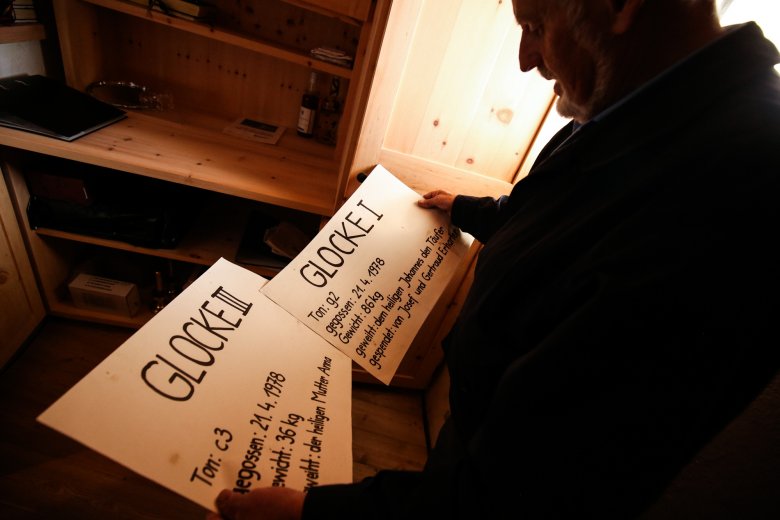 GLOCKE I
Ton: g2
gegossen: 21. 4. 1978
Gewicht: 86 kg
geweiht dem heiligen Johannes den Täufer
gespendet: von Josef und Gertraud
GLOCKE III
Ton: c3
gegossen: 21. 4. 1978
Gewicht: 36 kg
geweiht: der heiligen Mutter Anna